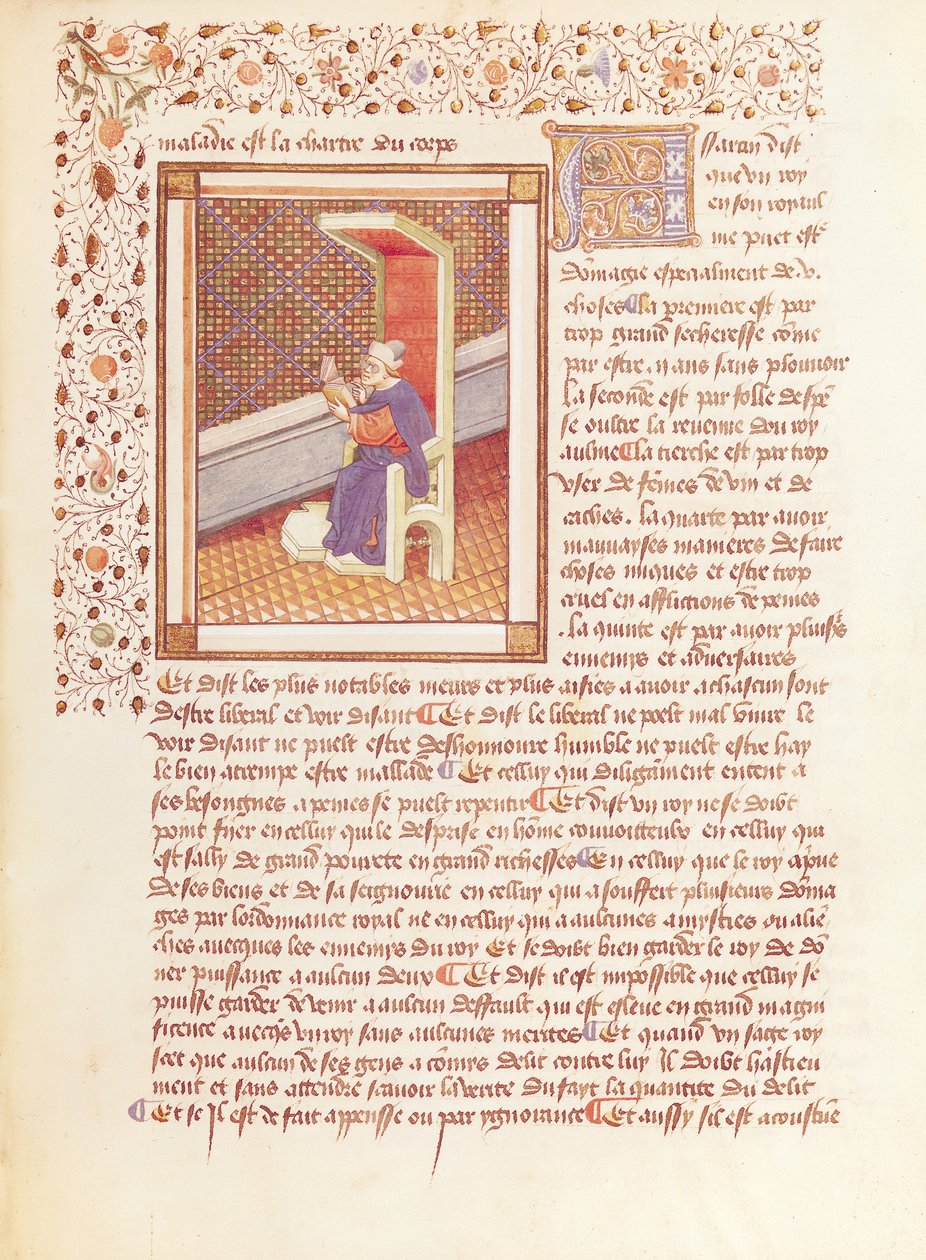 maladie est la chartre du corps
Assaran dist
que un roy
en son royaul
me puet estr
dōmagie especialment de .v.
choses ¶ la premiere est par
trop grand secheresse cōme
par estre .ii. ans sans plouvoir
la seconde est par folle despē
se oultre la revenue dou roy
aulme ¶ la tierche est par trop
user de fēmes de vin et de
caches . la quarte par avoir
mauvayses manieres de faire
choses iniques et estre trop
cruel en afflictions de peines
. la quinte est par avoir pluisrs
ennemis et adversaires
Et dist les plus notables meurs et plus aisies a avoir a chascun sont
destre liberal et voir disant ¶ Et dist le liberal ne poelt mal vivre le
voir disant ne puelt estre deshonnoure humble ne puelt estre hay
le bien atrempe estre mallade ¶ Et celluy qui diligāment entent a
ses besongnes a peines se puelt repentir ¶ Et dist un roy ne se doibt
point fyer en celluy qui le desprise en hōme couvoitteux en celluy qui
est sally de grand povrete en grand richesses ¶ En celluy que le roy a pve
de ses biens et de sa seignourie en celluy qui a souffert pluisieurs dōma
ges par lordonnance royal ne en celluy qui a aulcunes amysties ou aliē
ches avecques les ennemys du roy Et se doibt bien garder le roy de dō
ner puissance a aulcun deux ¶ Et dist il est impossible que celluy se
puisse garder de venir a aulcun deffault qui est esleve en grand magni
ficence avecqs un roy sans aulcunes merites ¶ Et quand un sage roy
scet que aulcun de ses gens a cōmis delit contre luy Il doibt hastieu
ment et sans attendre scavoir la verite du fayt la quantite du delit
¶ Et se Il est de fait appensse ou par ygnorance ¶ Et aussy sil est acoustūe